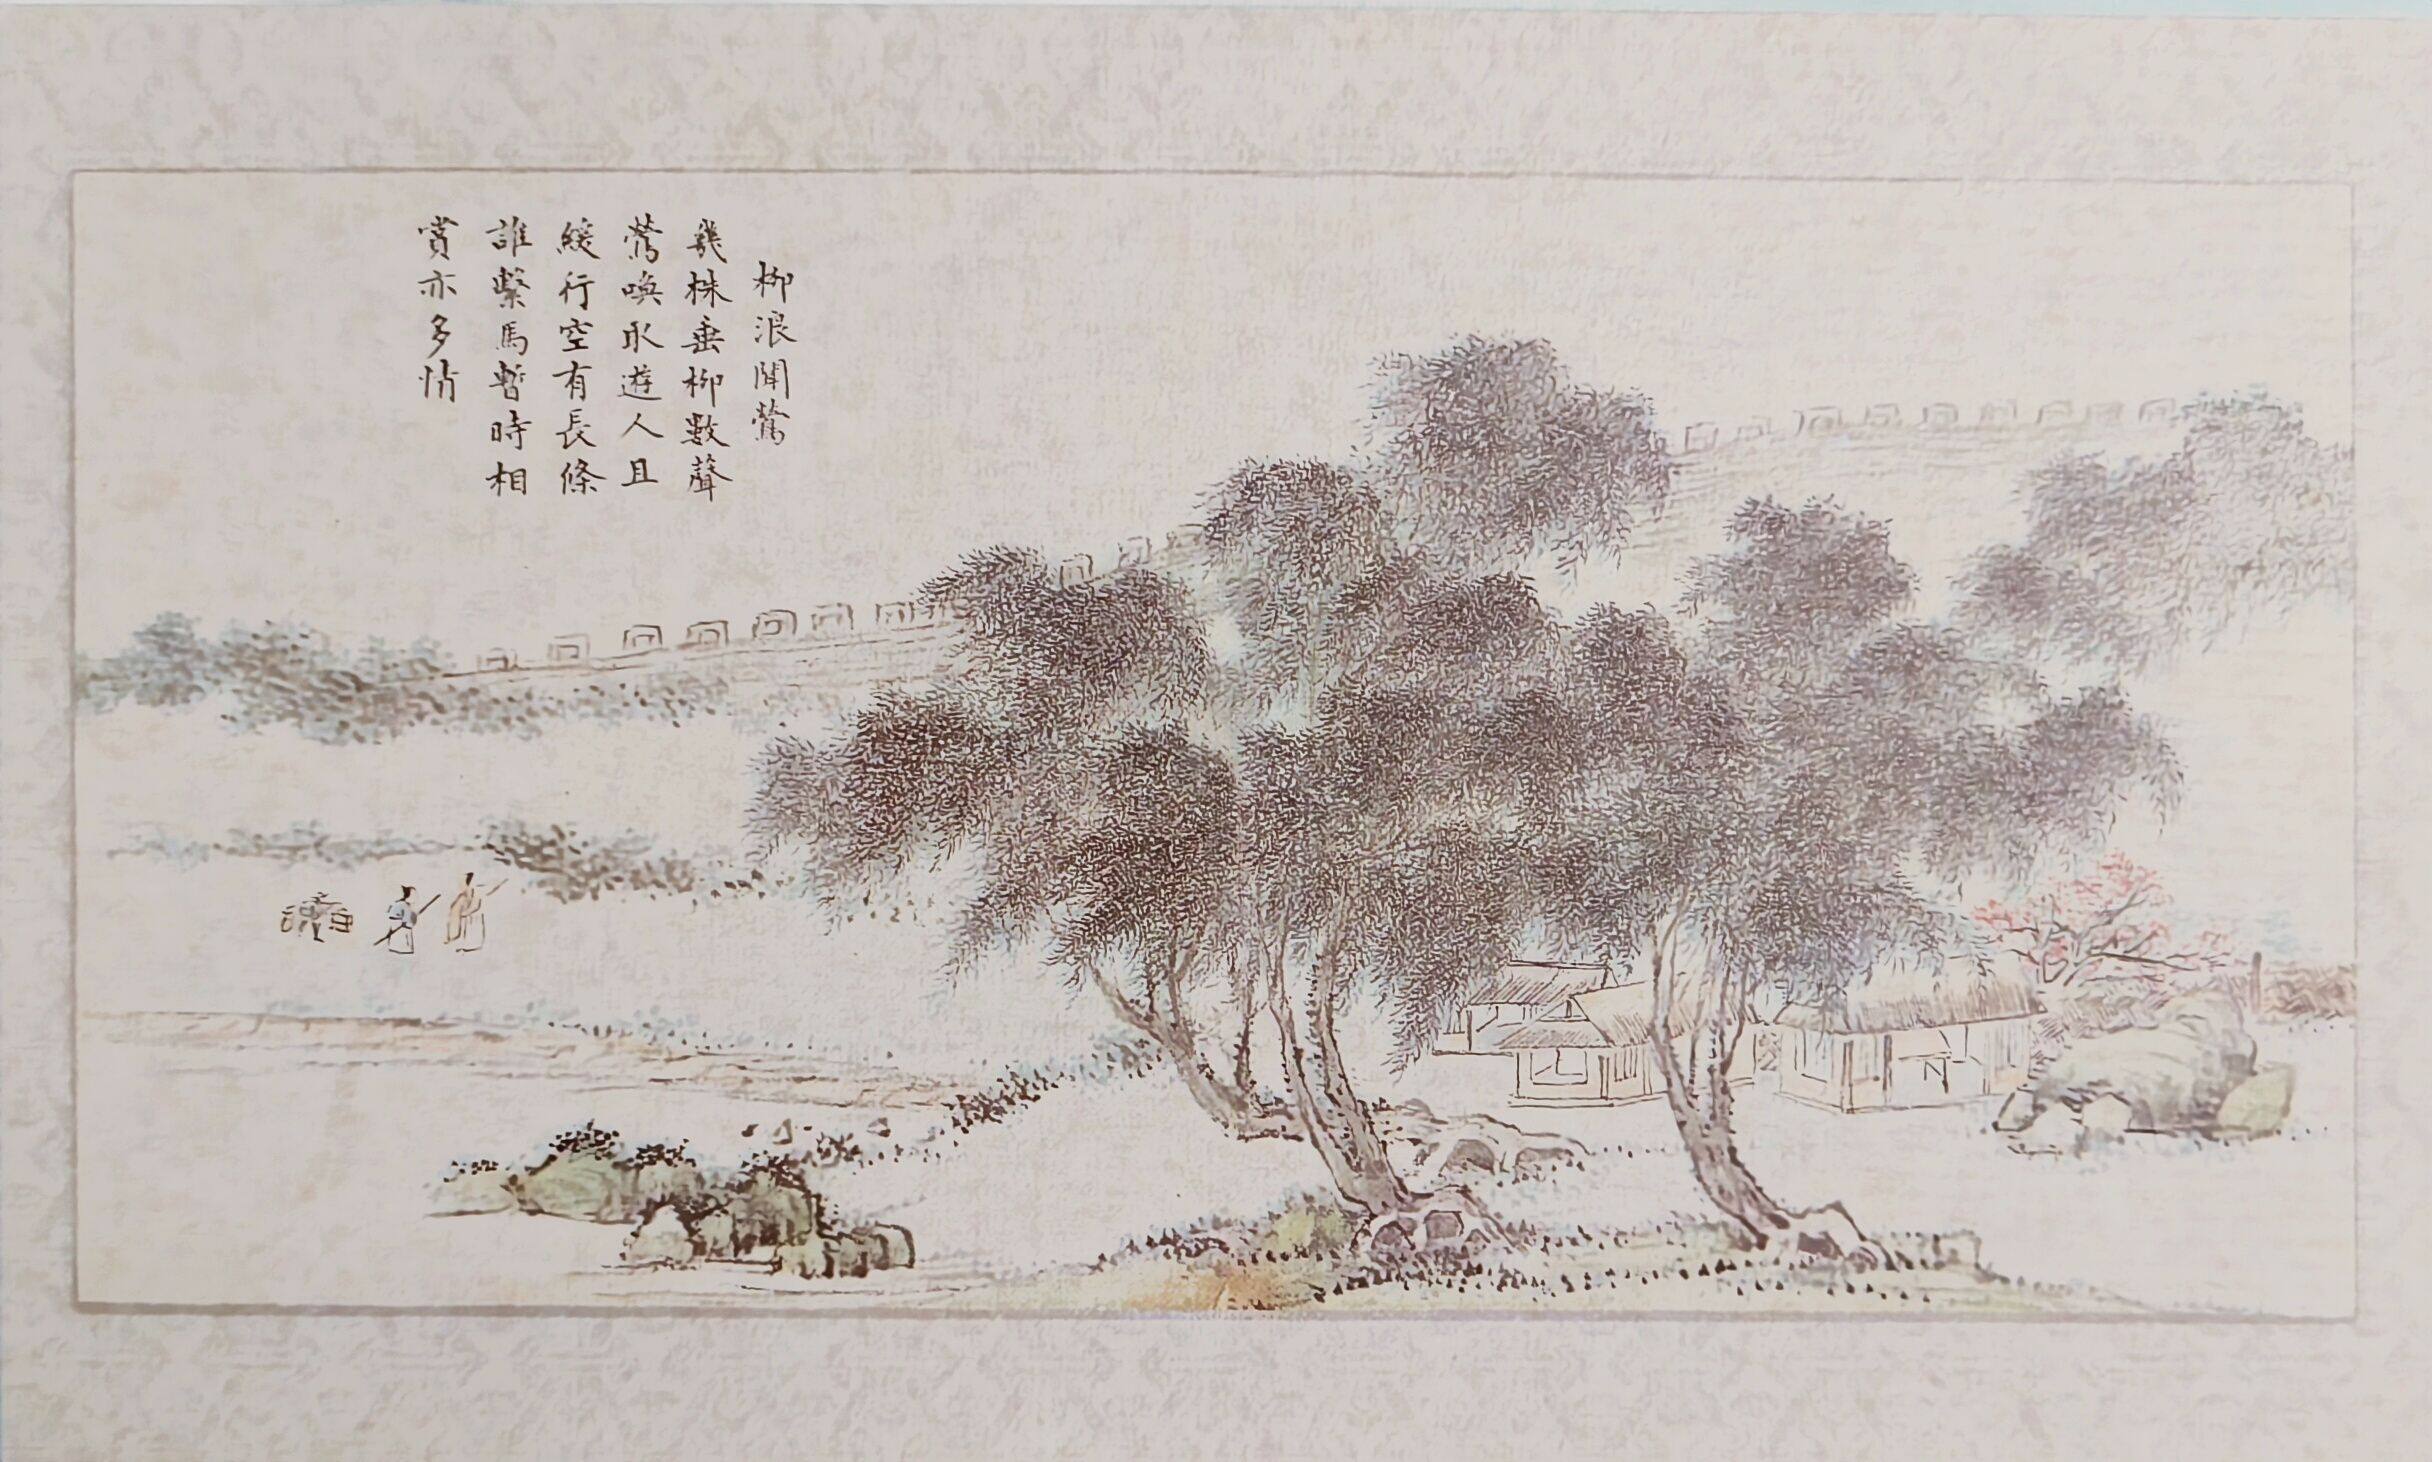 柳浪聞鶯
幾株垂柳數聲
鶯喚取遊人且
緩行空有長條
誰繫馬暫時相
賞亦多情